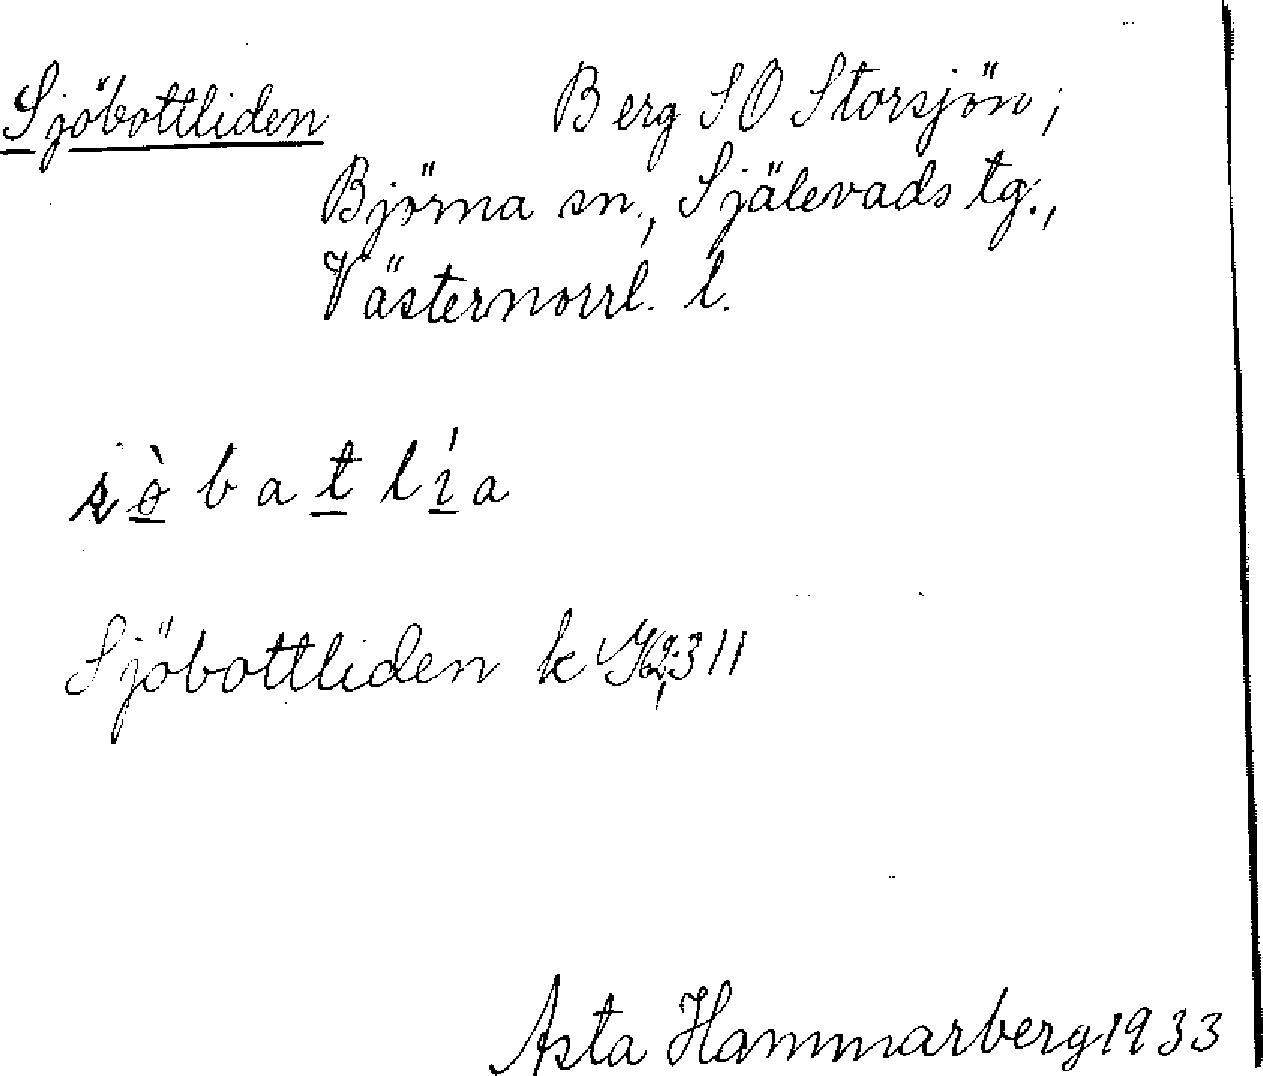 Sjöbottliden Berg SO Storsjön;
Björna sn., Själevads tg.,
Västernorrl. l.
Sjöbottliden k
Asta Hammarberg 1933